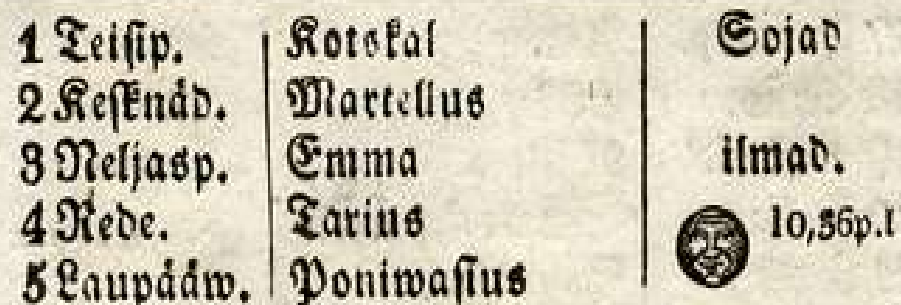 1 Teiſip. Kotskal Sojad
2 Keſknäd. Martellus
3 Neljasp. Emma ilmad.
4 Rede. Tarius 10,36p.l
5 Laupääw. Poniwaſius